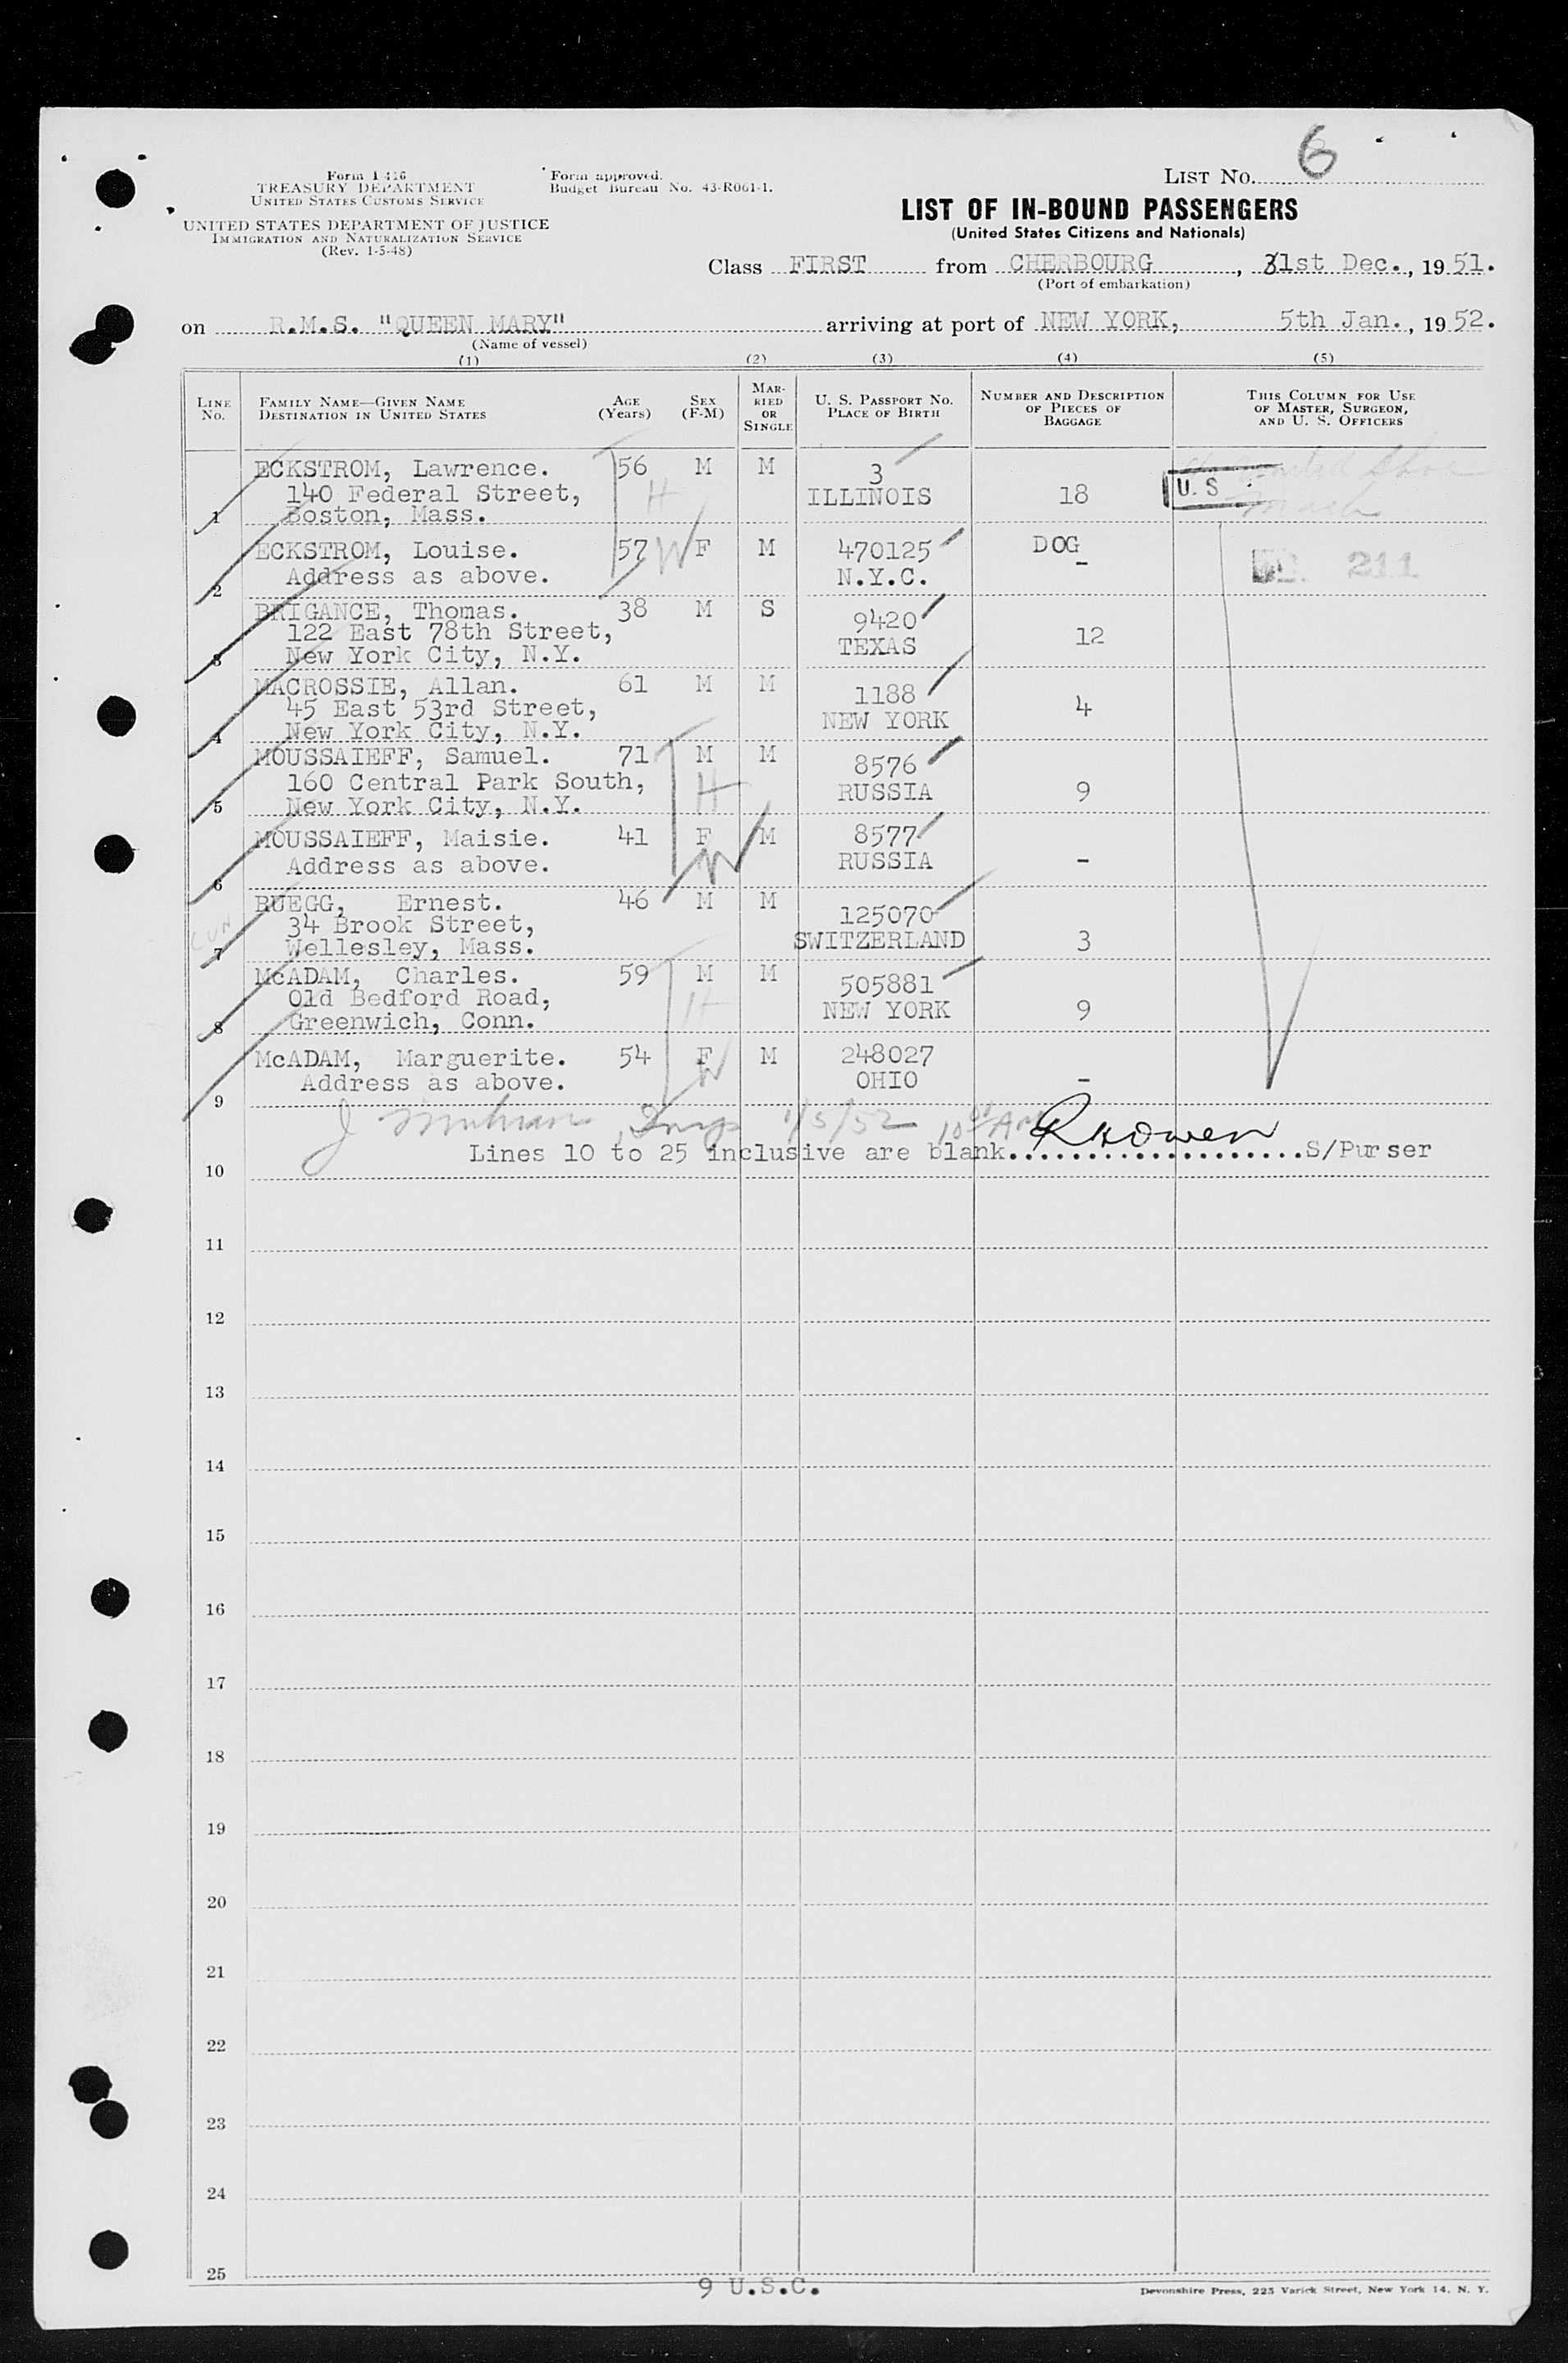 6
Form I-416
TREASURY DEPARTMENT
UNITED STATES CUSTOMS SERVICE
UNITED STATES DEPARTMENT OF JUSTICE
IMMIGRATION AND NATURALIZATION SERVICE
(Rev. 1-5-48)
Form approved.
Budget Bureau No. 43-R061-1.
LIST NO.
LIST OF IN-BOUND PASSENGERS
(United States Citizens and Nationals)
Class FIRST from CHERBOURG, 31st Dec., 1951.
(Port of embarkation)
on R.M.S. "QUEEN MARY" arriving at port of NEW YORK, 5th Jan., 1952.
(Name of vessel)
(1) (2) (3) (4) (5)
LINE NO. FAMILY NAME—GIVEN NAME DESTINATION IN UNITED STATES AGE (Years) SEX (F-M) MARRIED OR SINGLE U. S. PASSPORT NO. PLACE OF BIRTH NUMBER AND DESCRIPTION OF PIECES OF BAGGAGE THIS COLUMN FOR USE OF MASTER, SURGEON, AND U. S. OFFICERS
ECKSTROM, Lawrence. 56 M M 3
140 Federal Street, H ILLINOIS 18 U.S
1 Boston, Mass.
ECKSTROM, Louise. 57 W F M 470125 DOG
2 Address as above. N.Y.C. - 211
BRIGANCE, Thomas. 38 M S 9420
122 East 78th Street, TEXAS 12
3 New York City, N.Y.
MACROSSIE, Allan. 61 M M 1188
45 East 53rd Street, NEW YORK 4
4 New York City, N.Y.
MOUSSAIEFF, Samuel. 71 M M 8576
160 Central Park South, H RUSSIA 9
5 New York City, N.Y.
MOUSSAIEFF, Maisie. 41 F M 8577
6 Address as above. W RUSSIA -
RUEGG, Ernest. 46 M M 125070
34 Brook Street, SWITZERLAND 3
7 Wellesley, Mass.
McADAM, Charles. 59 M M 505881
Old Bedford Road, H NEW YORK 9
8 Greenwich, Conn.
McADAM, Marguerite. 54 F M 248027
9 Address as above. W OHIO -
1/5/52 10 AM
10 Lines 10 to 25 inclusive are blank. R H Owen S/Purser
11
12
13
14
15
16
17
18
19
20
21
22
23
24
25
9 U.S.C.
Devonshire Press, 225 Varick Street, New York 14, N. Y.